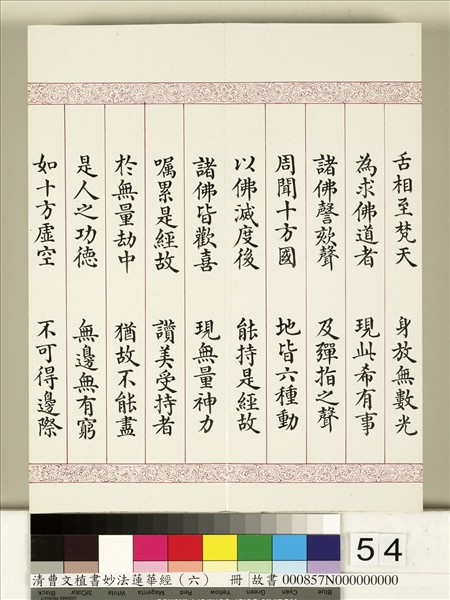 舌相至梵天 身放無數光
為求佛道者 現此希有事
諸佛謦欬聲 及彈指之聲
周聞十方國 地皆六種動
以佛滅度後 能持是經故
諸佛皆歡喜 現無量神力
囑累是經故 讚美受持者
於無量劫中 猶故不能盡
是人之功德 無邊無有窮
如十方虛空 不可得邊際
54
Black 3/Color White Magenta Red Yellow Green Cyan Blue
清曹文植書妙法蓮華經(六) 冊 故書 000857N000000000